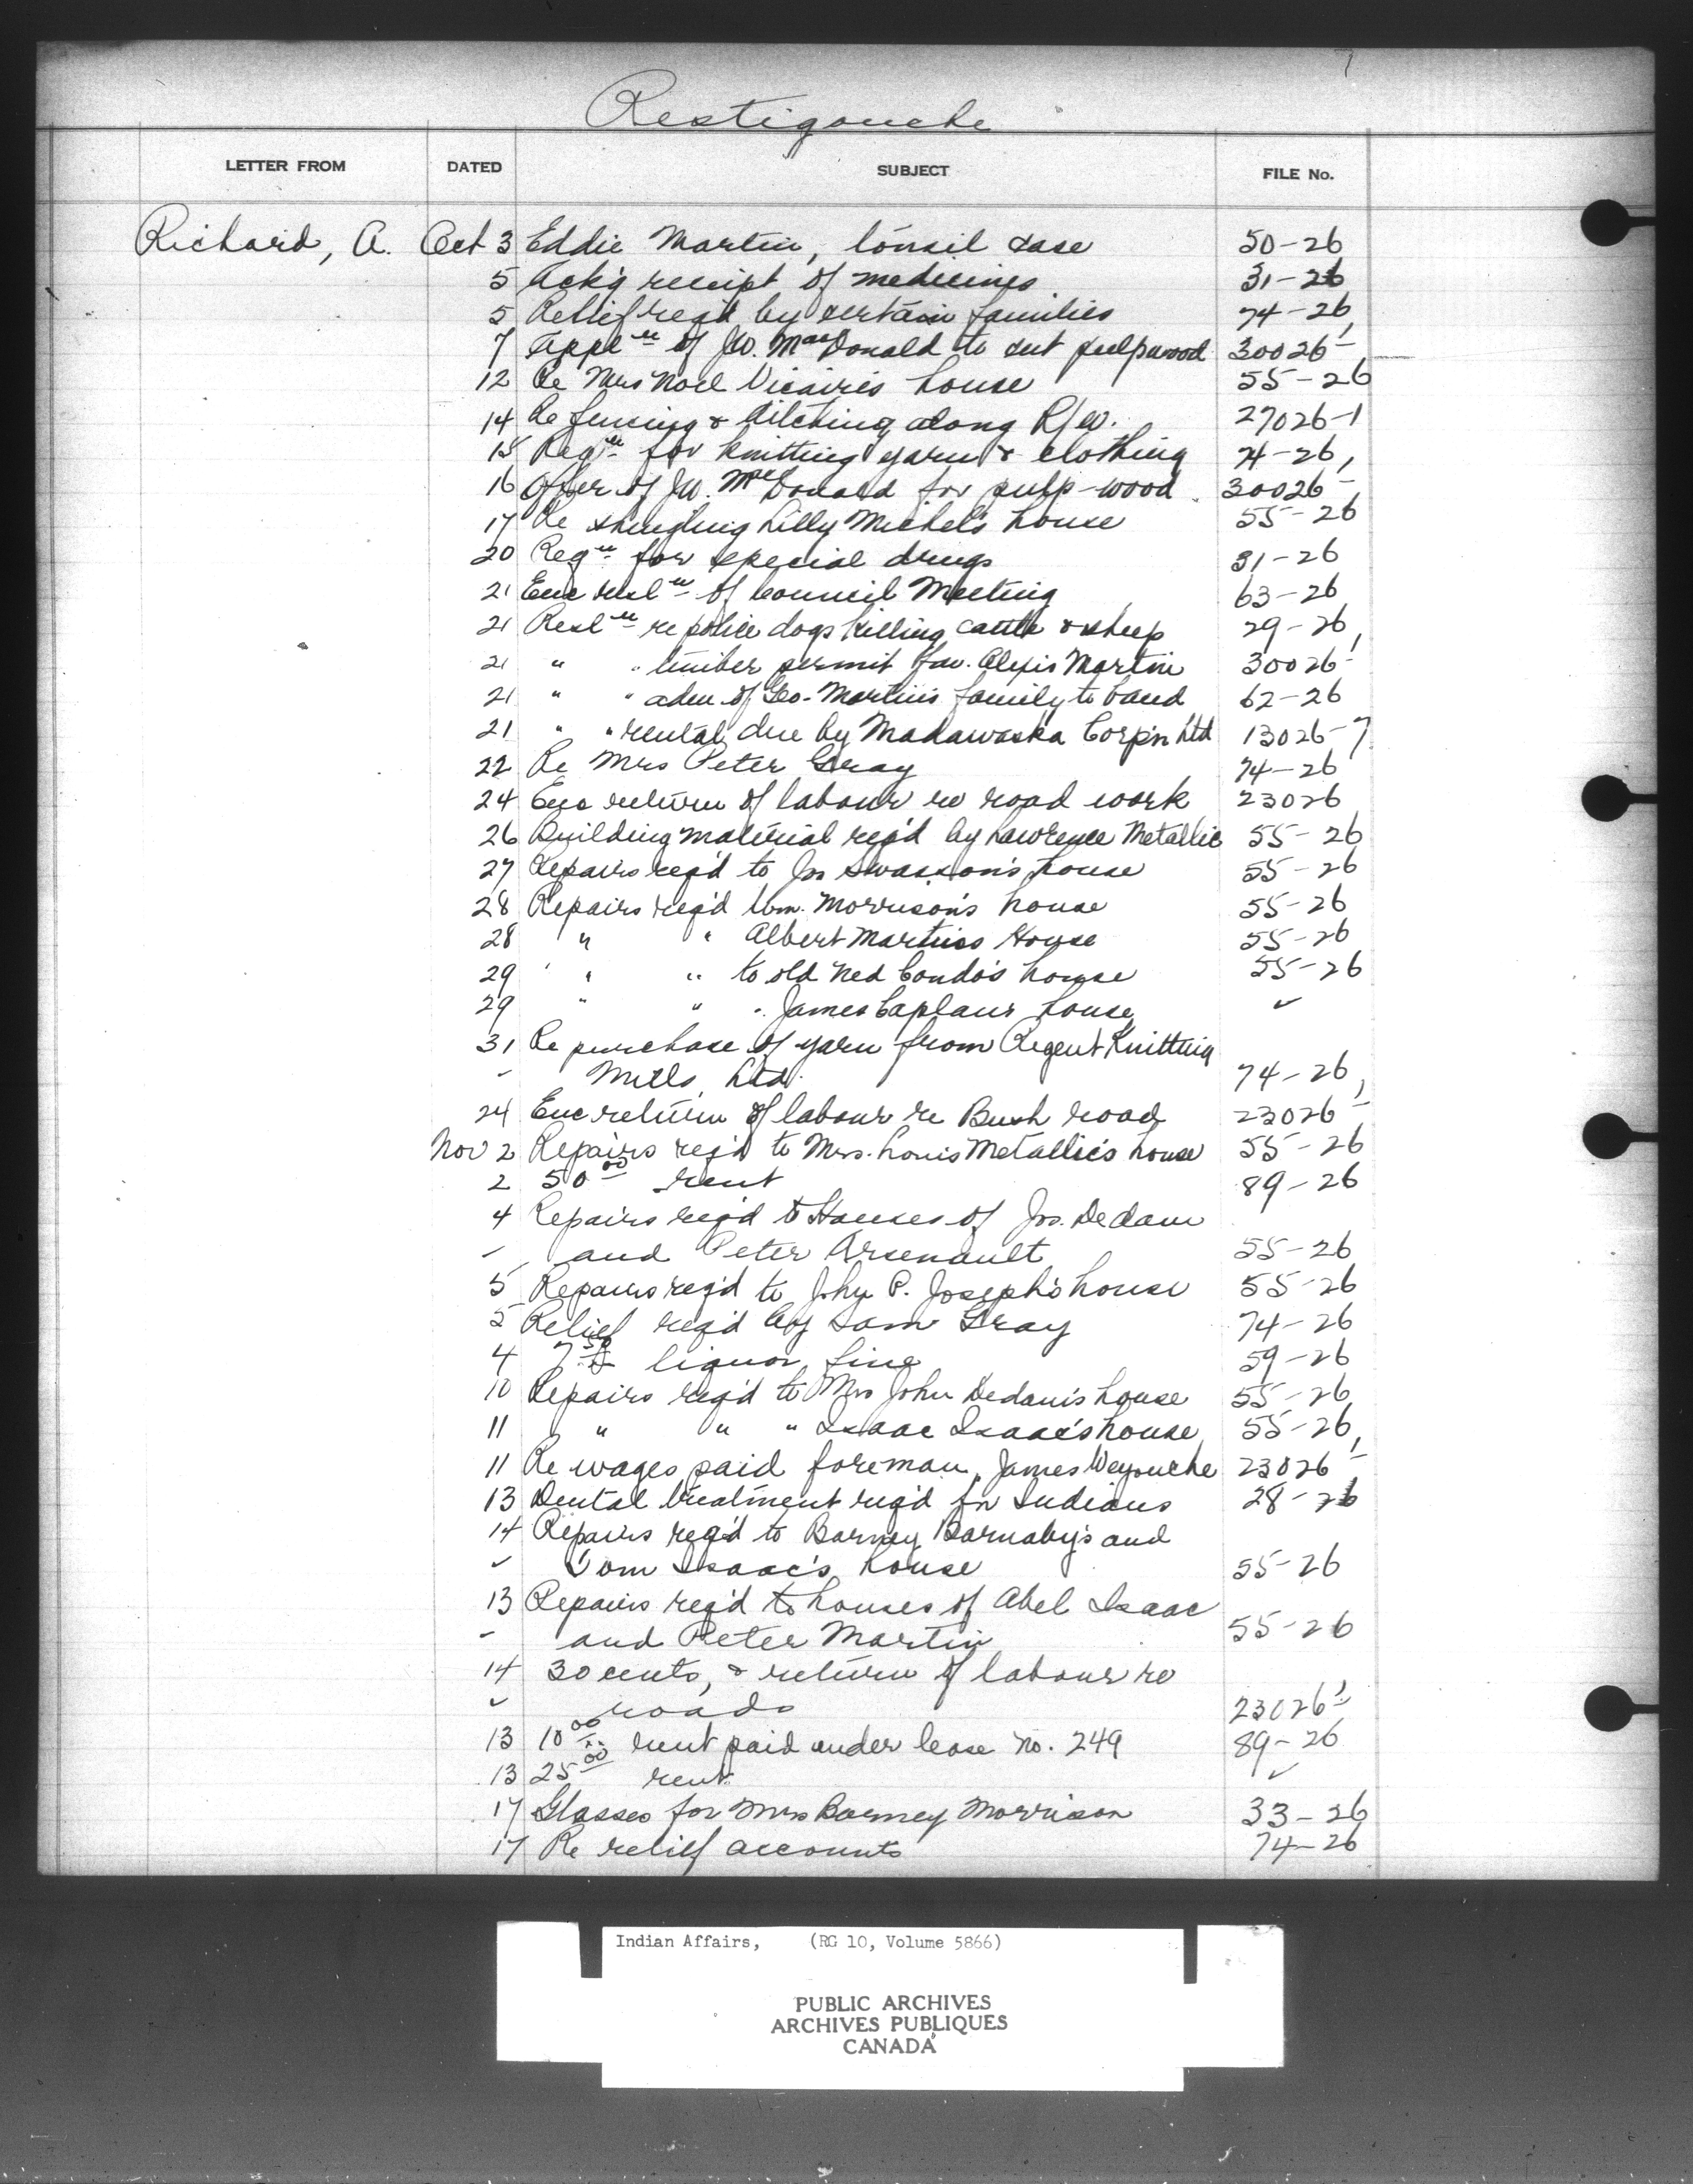 7
Restigouche
LETTER FROM DATED SUBJECT FILE No.
Richard, A. Oct 3 Eddie Martin, tonsil case 50-26
5 Ack'g receipt of medicines 31-26
5 Relief req'd by certain families 74-26
7 Appl'n of J.W. MacDonald to cut pulpwood 30026-1
12 Re Mrs Noel Vicaire's house 55-26
14 Re fencing & ditching along R/W. 27026-1
15 Reqn for knitting yarn & clothing 74-26
16 Offer of J.W. MacDonald for pulp-wood 30026-1
17 Re shingling Lilly Michel's house 55-26
20 Reqn for special drugs 31-26
21 Enc resln of Council Meeting 63-26
21 Resln re police dogs killing cattle & sheep 29-26
21 " " timber permit fav. Alexis Martin 30026-1
21 " " adm. of Geo. Martin's family to band 62-26
21 " " rental due by Madawaska Corp'n Ltd 13026-7
22 Re Mrs Peter Gray 74-26
24 Enc return of labour re road work 23026
26 Building material req'd by Lawrence Metallic 55-26
27 Repairs req'd to Jos Swasson's house 55-26
28 Repairs req'd Wm. Morrison's house 55-26
28 " " Albert Martins House 55-26
29 " " to old Ned Condo's house 55-26
29 " " " James Caplan's house ✓
31 Re purchase of yarn from Regent Knitting
- Mills, Ltd. 74-26
24 Enc return of labour re Bush road 23026-1
Nov 2 Repairs req'd to Mrs. Louis Metallic's house 55-26
2 50.00 rent 89-26
4 Repairs req'd to Houses of Jos. Dedam
- and Peter Arsenault 55-26
5 Repairs req'd to John P. Joseph's house 55-26
5 Relief req'd by Sam Gray 74-26
4 liquor fine 59-26
10 Repairs req'd to Mrs John Dedam's house 55-26
11 " " " Isaac Isaac's house 55-26
11 Re wages paid foreman, James Weyouche 23026-1
13 Dental treatment req'd for Indians 28-26
14 Repairs req'd to Barney Barnaby's and
✓ Tom Isaac's house 55-26
13 Repairs req'd to houses of Abel Isaac
- and Peter Martin 55-26
14 30 cents, & return of labour re
✓ roads 23026-1
13 10.00 rent paid under lease No. 249 89-26
13 25.00 rent ✓
17 Glasses for Mrs Barney Morrison 33-26
17 Re relief accounts 74-26
Indian Affairs, (RG 10, Volume 5866)
PUBLIC ARCHIVES
ARCHIVES PUBLIQUES
CANADA